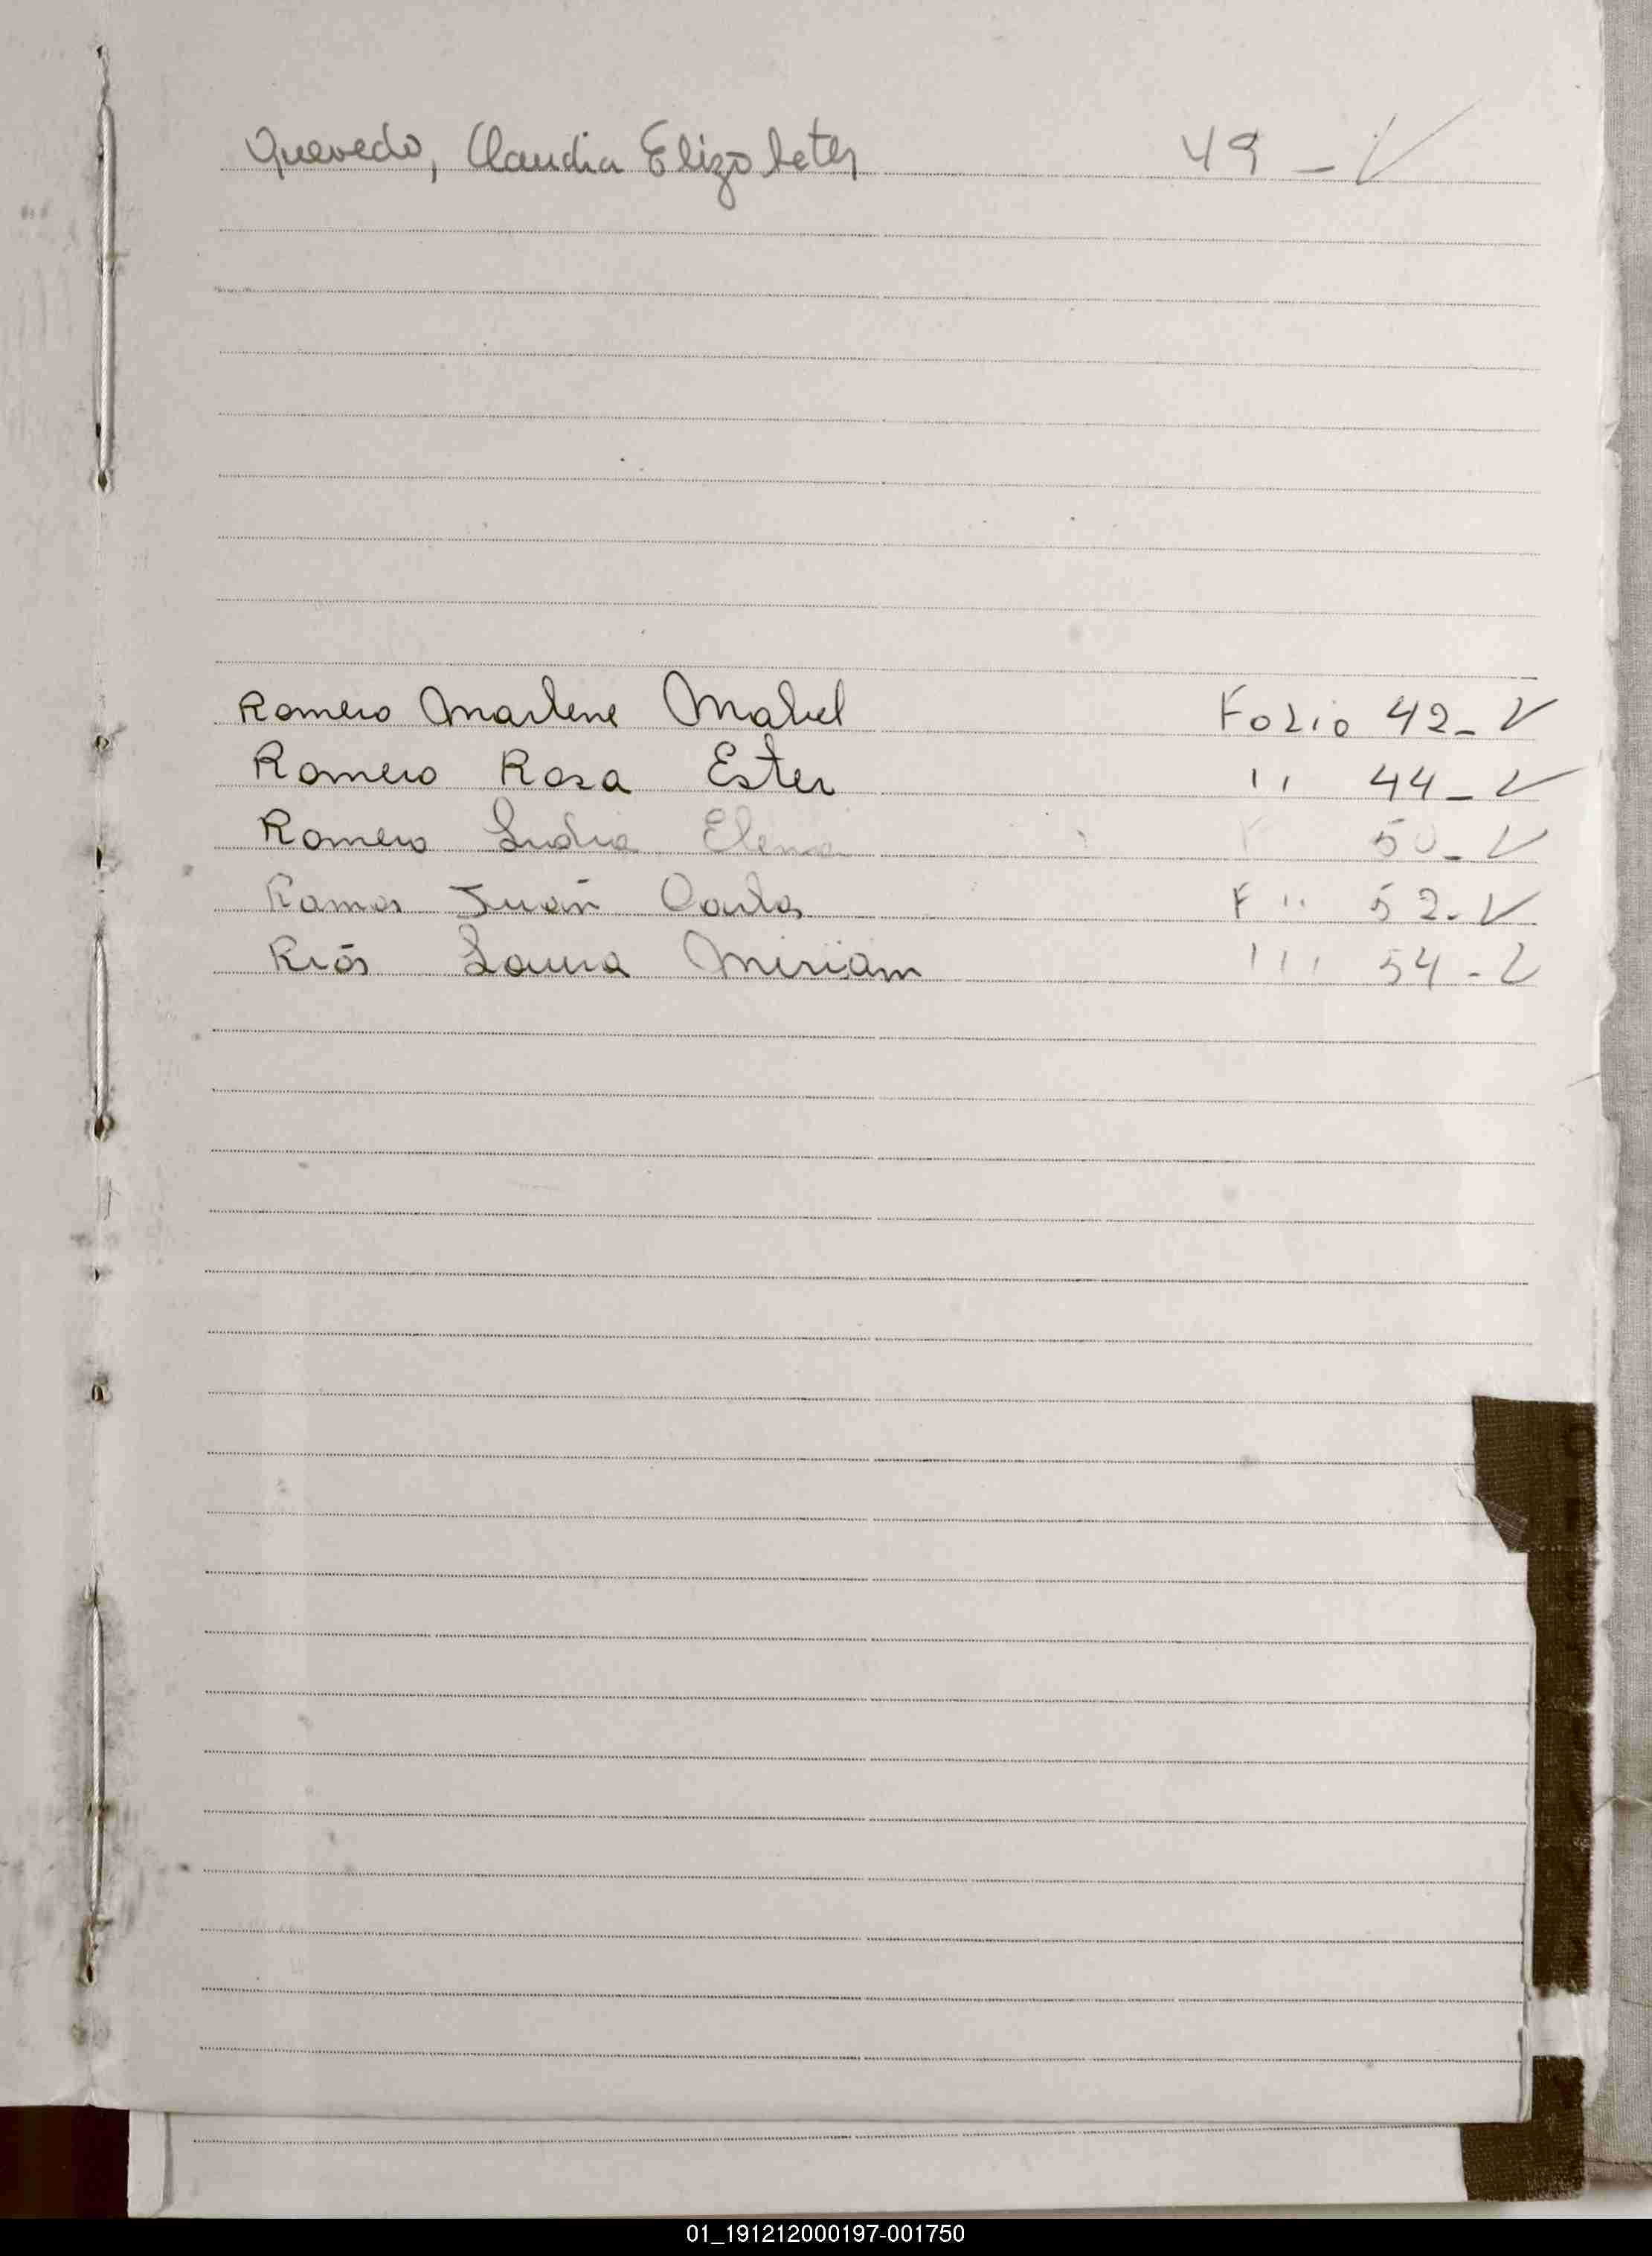 Quevedo, Claudia Elizabeter 49 - V
Romero Marlene Mabel Folio 42 - V
Romero Rosa Ester '' 44 - V
Romero Lidia Elena F 50 - V
Ramos Juan Carlos F '' 52 - V
Riós Laura Miriam ''' 54 - V
01_191212000197-001750